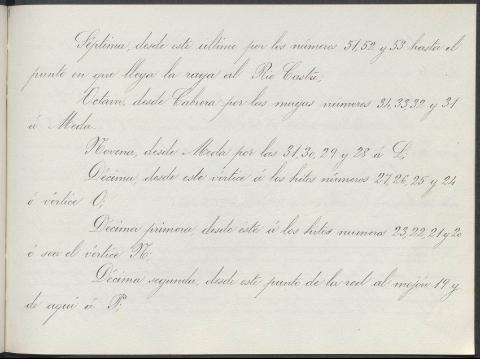 Séptima, desde este último por los números 51, 52 y 53 hasta el
punto en que llega la raya al Rio Castro,
Octava, desde Cabrera por las mugas números 34, 33, 32 y 31
á Meda.
Novena, desde Meda por las 31, 30, 29 y 28 á L,
Décima, desde este vértice á los hitos números 27, 26, 25 y 24
ó vértice O;
Décima primera, desde este á los hitos numeros 23, 22, 21 y 20
ó sea el vértice N;
Décima segunda, desde este punto de la red al mojón 19, y
de aquí á P;